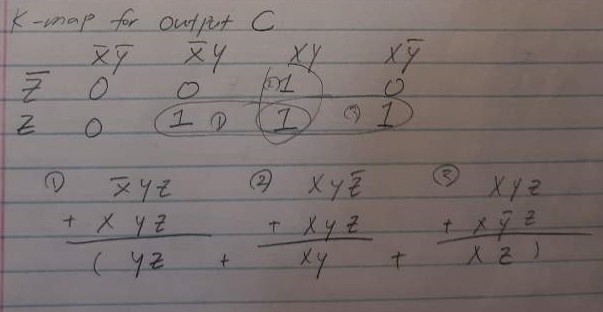 K-map for output C
X̅Y̅ X̅Y XY XY̅
Z̅ 0 0 ②1 0
Z 0 1 ① 1 ③ 1
① X̅YZ ② XYZ̅ ③ XYZ
+ XYZ + XYZ + XY̅Z
(YZ + XY + XZ)